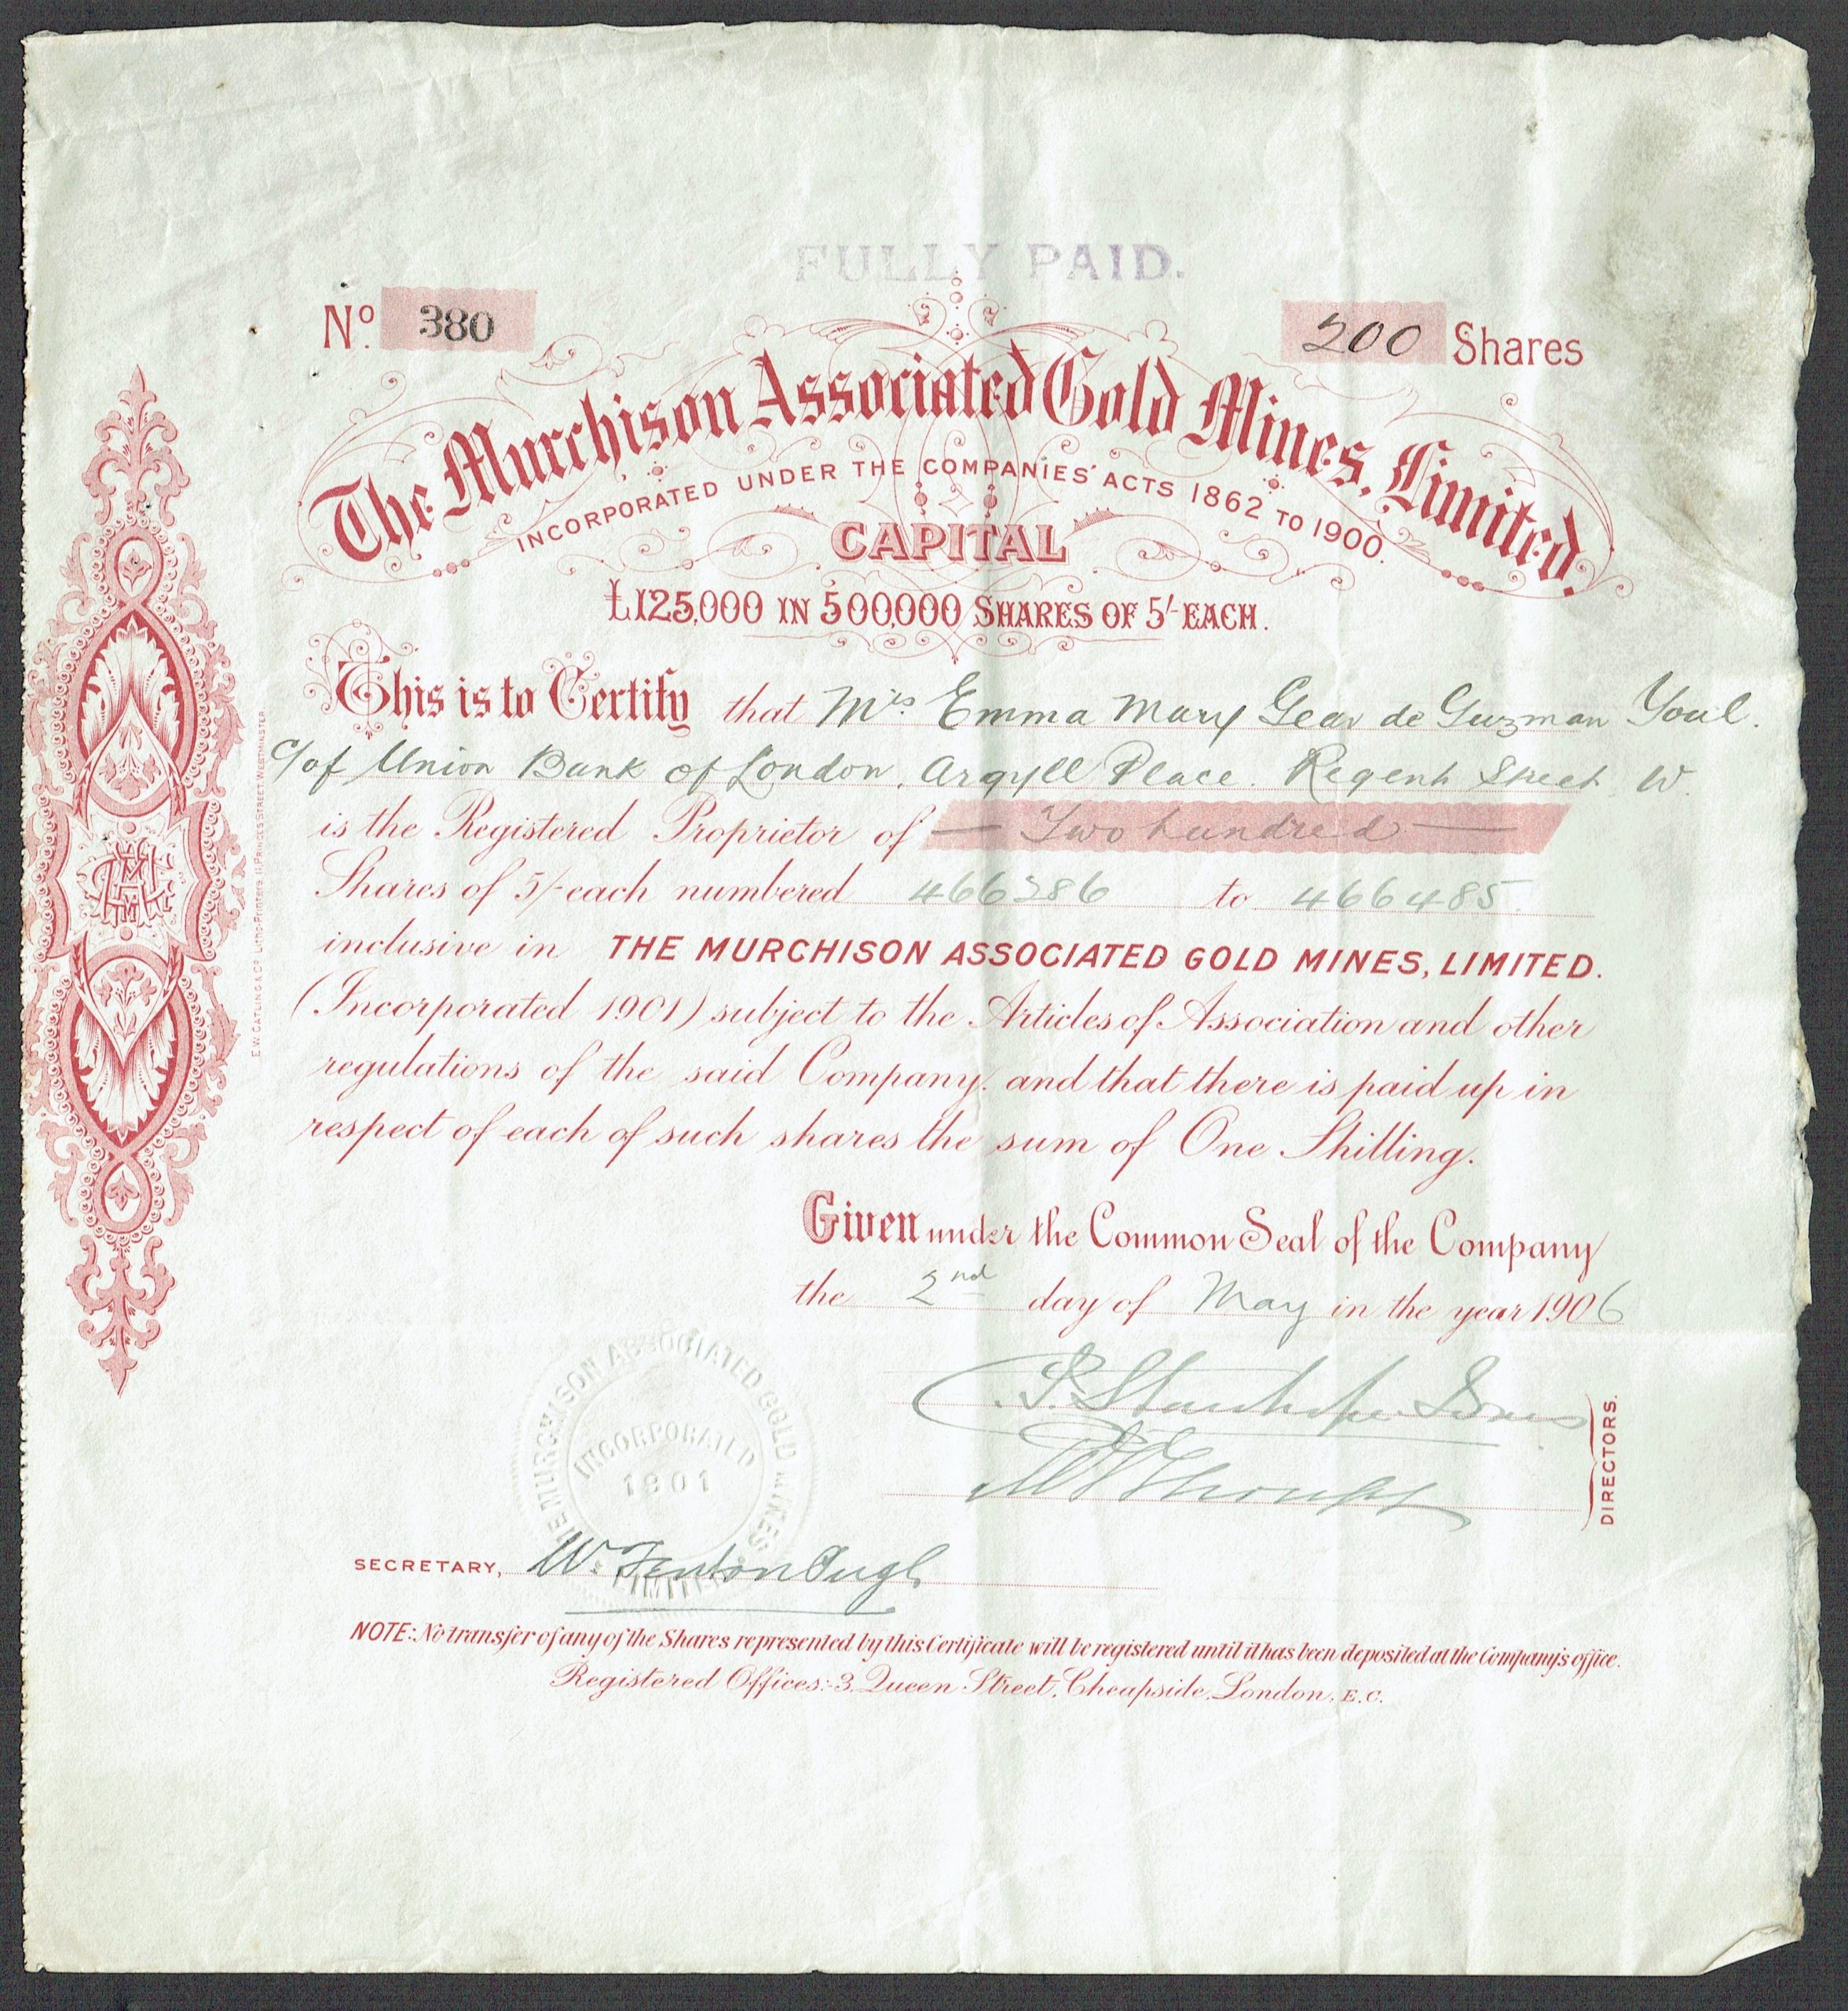 FULLY PAID.
No. 380
200 Shares
The Murchison Associated Gold Mines, Limited.
INCORPORATED UNDER THE COMPANIES' ACTS 1862 TO 1900.
CAPITAL
£125,000 IN 500,000 SHARES OF 5/- EACH.
This is to Certify that Mrs Emma Mary Gear de Guzman Youl.
c/of Union Bank of London, Argyll Place. Regent Street W.
is the Registered Proprietor of — Two hundred —
Shares of 5/- each numbered 466286 to 466485.
inclusive in THE MURCHISON ASSOCIATED GOLD MINES, LIMITED.
(Incorporated 1901) subject to the Articles of Association and other
regulations of the said Company, and that there is paid up in
respect of each of such shares the sum of One Shilling.
Given under the Common Seal of the Company
the 2nd day of May in the year 1906
DIRECTORS.
THE MURCHISON ASSOCIATED GOLD MINES LIMITED
INCORPORATED
1901
SECRETARY, W. Fenton
NOTE:- No transfer of any of the Shares represented by this Certificate will be registered until it has been deposited at the Company's office.
Registered Offices:- 3, Queen Street, Cheapside, London, E.C.
E.W. CATLING & Co. LITHO PRINTERS, 11, PRINCES STREET, WESTMINSTER